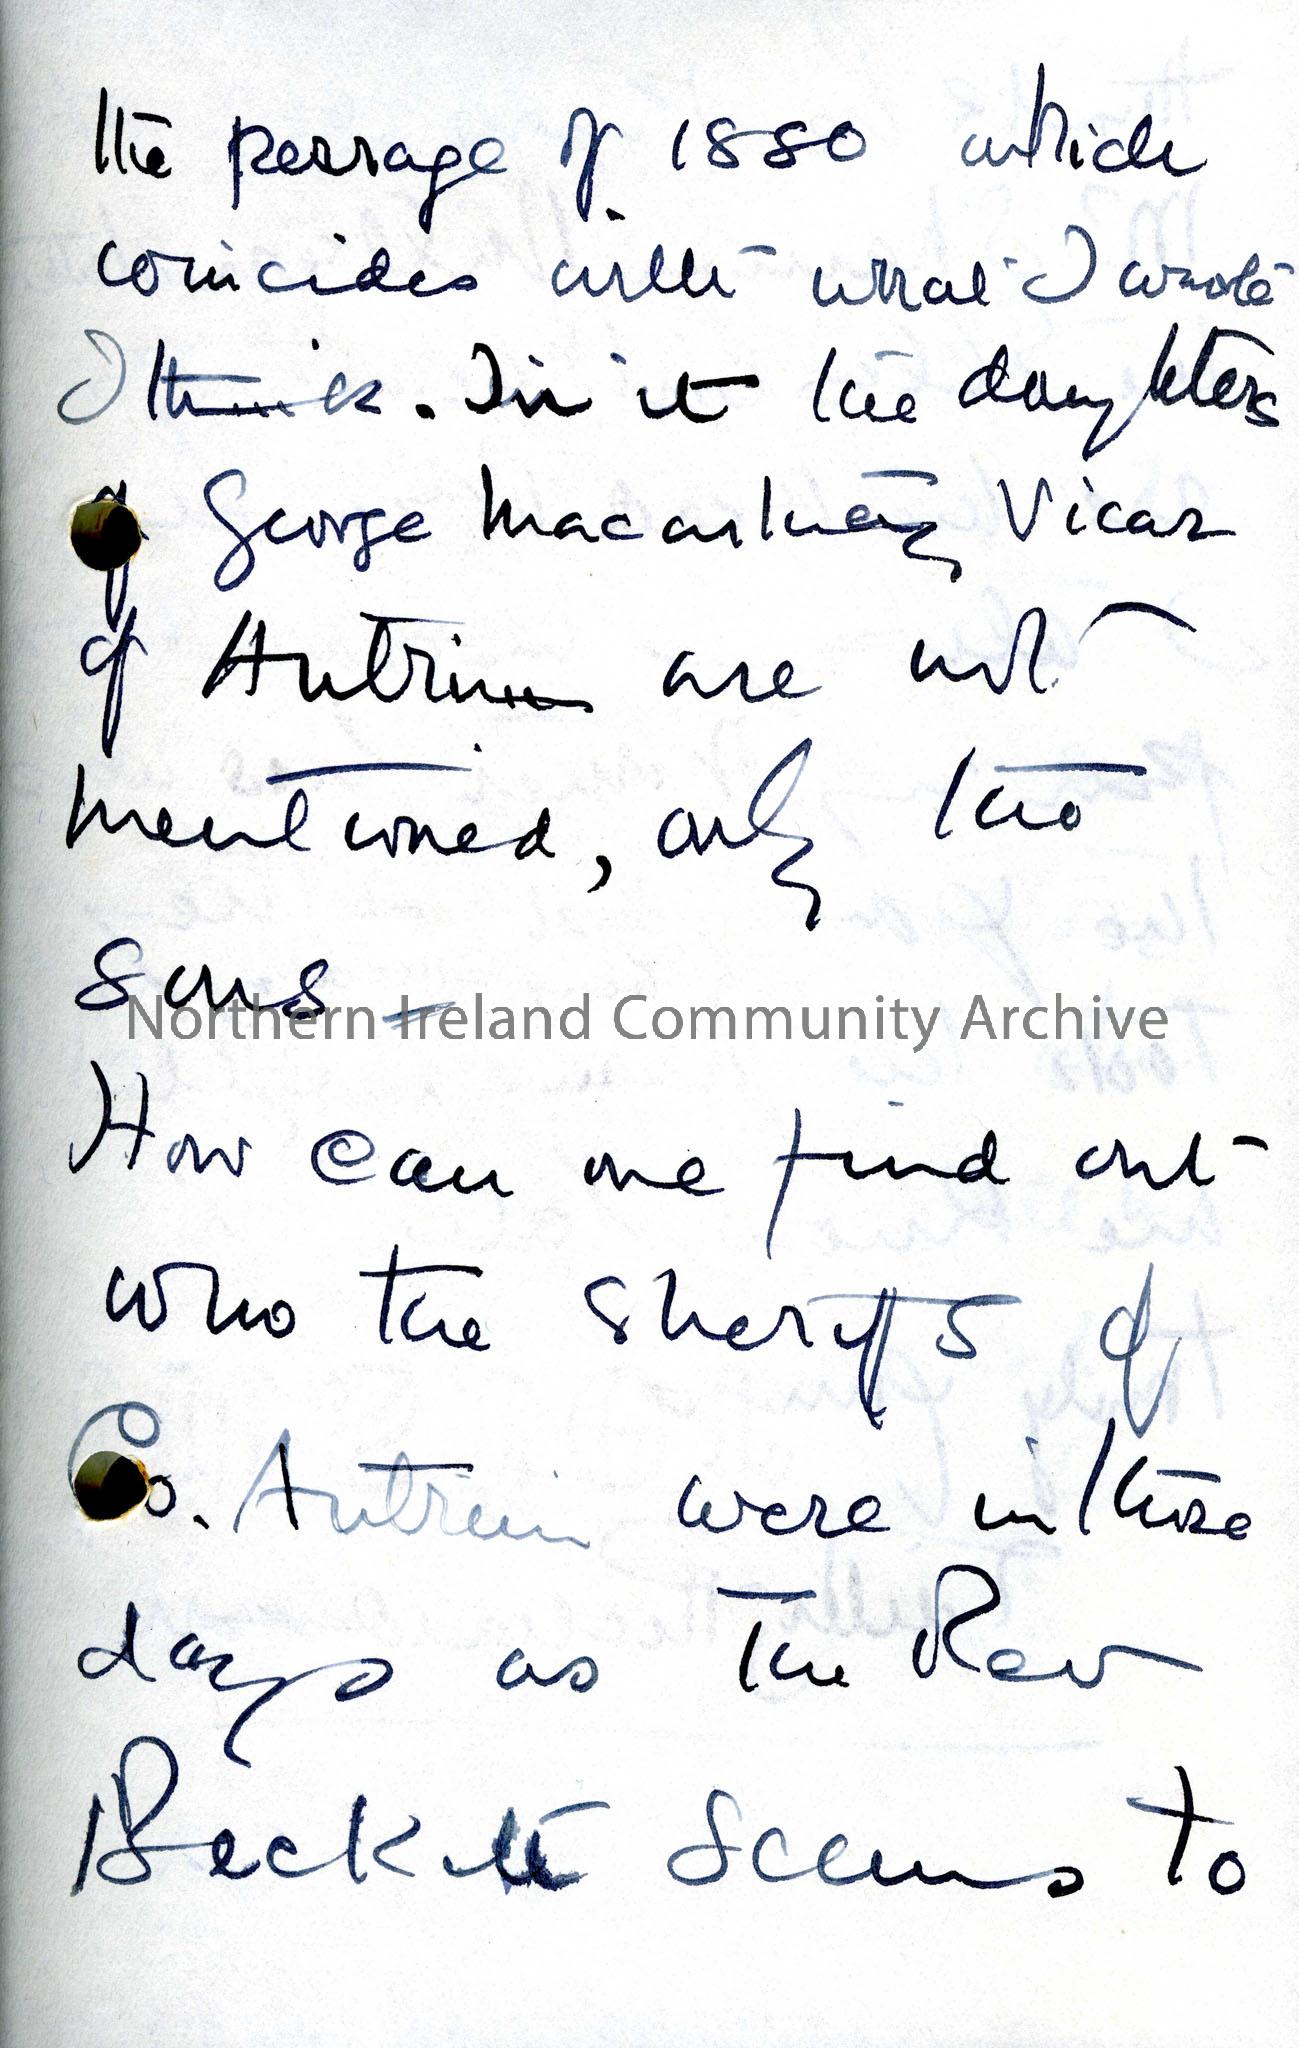 the perrage of 1880 which
coincides with what I wrote
I think. In it the daughters
of George Macartney Vicar
of Antrim are not
mentioned, only the
sons -
Northern Ireland Community Archive
How can one find out
who the sheriffs of
Co. Antrim were in those
days as the Rev
Beckett seems to